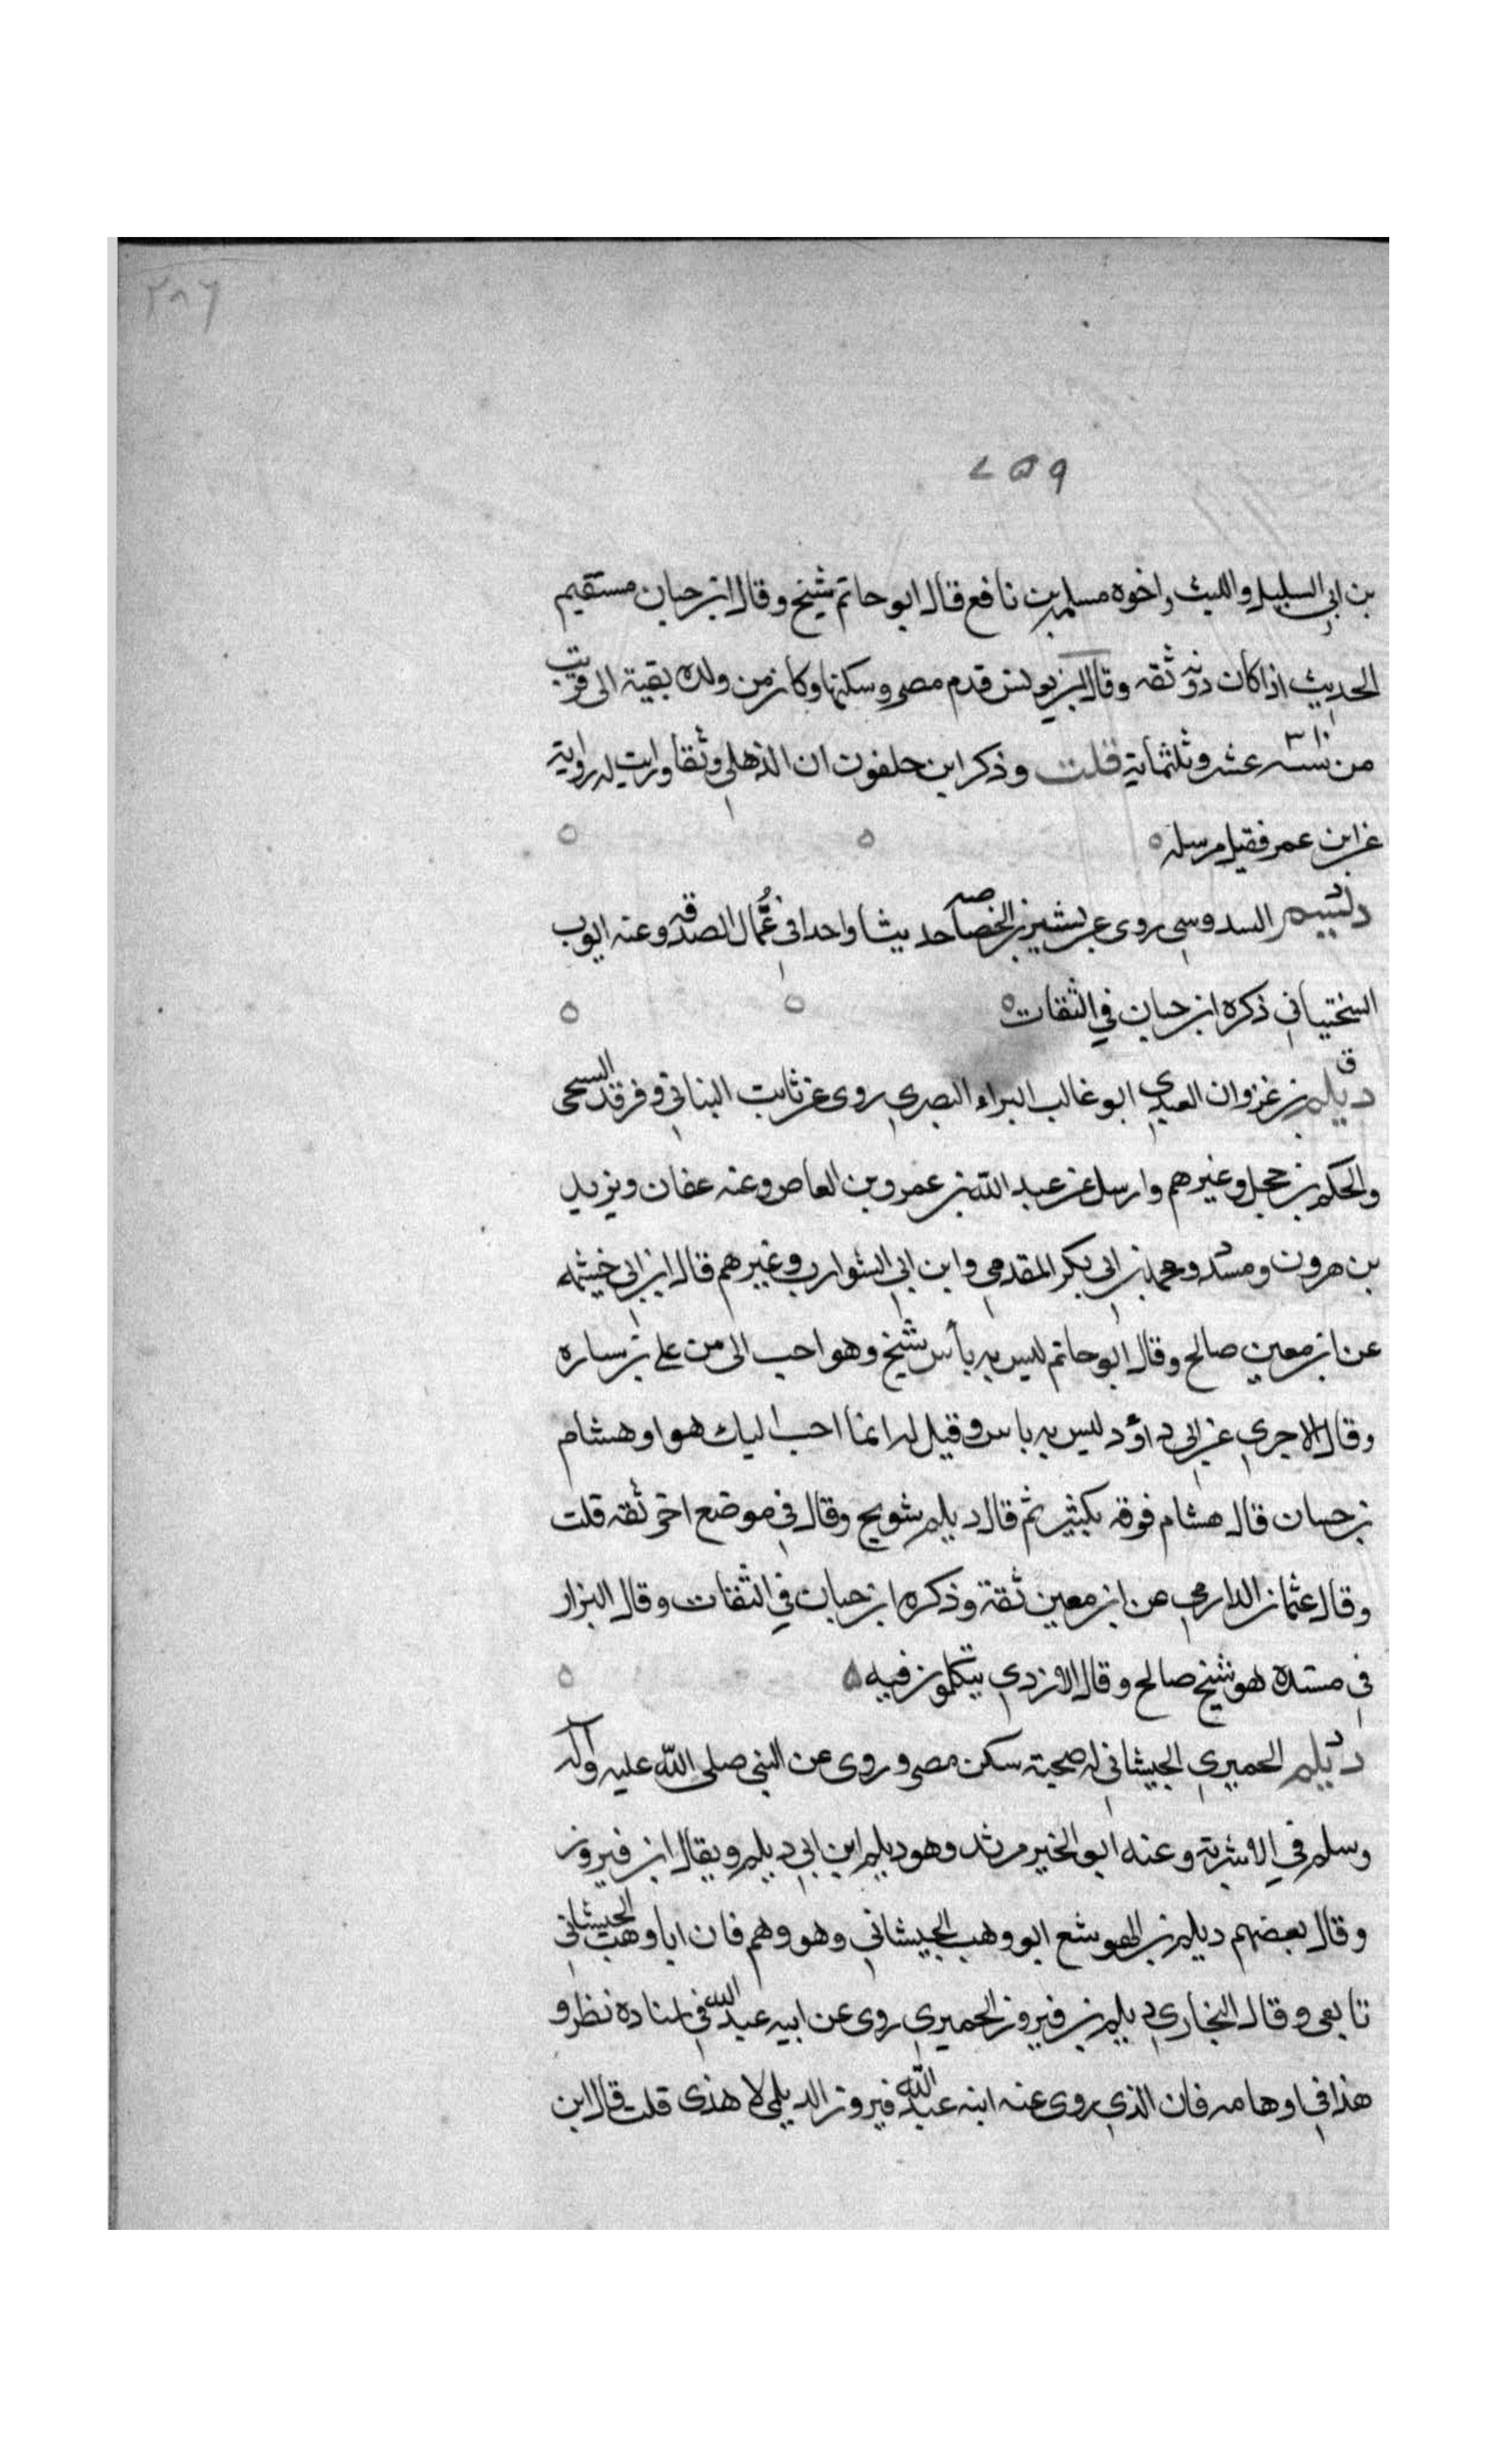 ٢٨٦
٤٥٩
بن ابي السليل والليث واخوه مسلم بن نافع قال ابو حاتم شيخ وقال ابن حبان مستقيم
الحديث اذا كان دونه ثقه وقال ابن يونس قدم مصر وسكنها وكان من ولده بقية الى قريب
من سنه عشر وثلثماية قلت وذكر ابن خلفون ان الذهلي وثقه ورايت له رواية
عن ابن عمر فقيل مرسله
د ديسم السدوسي روى عن بشير بن الخصاصيه حديثا واحدا في عُمّال الصدقه وعنه ايوب
السختياني ذكره ابن حبان في الثقات
ق ديلم بن غزوان العبدي ابو غالب البراء البصري روى عن ثابت البناني وفرقد السبخي
والحكم بن حجل وغيرهم وارسل عن عبد الله بن عمرو بن العاص وعنه عفان ويزيد
بن هرون ومسدد ومحمد بن ابي بكر المقدمي وابن ابي الشوارب وغيرهم قال ابن ابي خيثمه
عن ابن معين صالح وقال ابو حاتم ليس به بأس شيخ وهو احب الى من علي بن ساره
وقال الاجري عن ابي داؤد ليس به باس وقيل له ايما احب اليك هو او هشام
بن حسان قال هشام فوقه بكثير ثم قال ديلم شويخ وقال في موضع اخر ثقه قلت
وقال عثمان الدارمي عن ابن معين ثقة وذكره ابن حبان في الثقات وقال البزار
في مسنده هو شيخ صالح وقال الازدي يتكلمون فيه
د ديلم الحميري الجيشاني له صحبة سكن مصر وروى عن النبي صلى الله عليه وآله
وسلم في الاشربة وعنه ابو الخير مرثد وهو ديلم ابن ابي ديلم ويقال ابن فيروز
وقال بعضهم ديلم بن الهوشع ابو وهب الجيشاني وهو وهم فان ابا وهب الجيشاني
تابعي وقال البخاري ديلم بن فيروز الحميري روى عن ابيه عبد الله في اسناده نظر و
هذا في اوهامه فان الذي روى عنه ابنه عبد الله فيروز الديلمي لا هذى قلت قال ابن